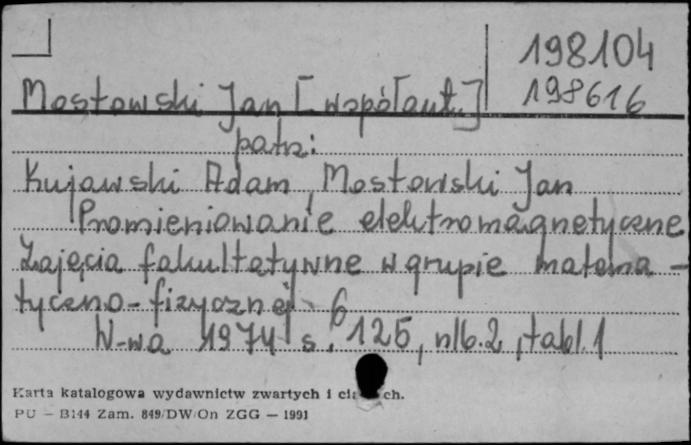 198104
198616
Mostowski Jan [współaut.]
patrz:
Kujawski Adam, Mostowski Jan
Promieniowanie elektromagnetyczne
Zajęcia fakultatywne w grupie matema-
tyczno-fizycznej 6
W-wa 1974 s. 125, nlb. 2, tabl. 1
Karta katalogowa wydawnictw zwartych i ch.
PU — B144 Zam. 849/DW/On ZGG — 1991